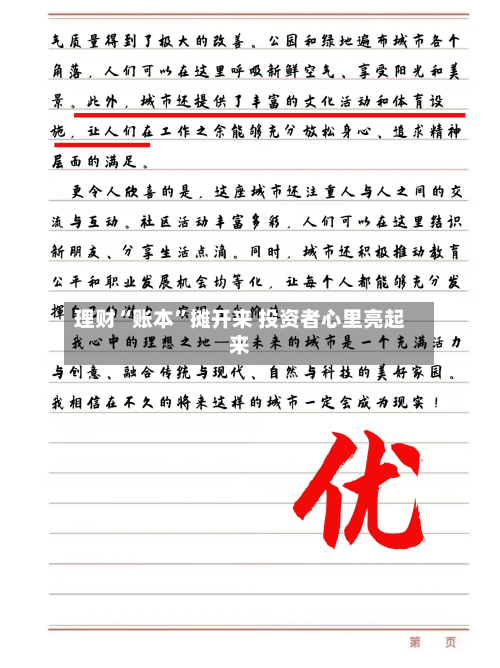 气质量得到了极大的改善。公园和绿地遍布城市各个
角落，人们可以在这里呼吸新鲜空气、享受阳光和美
景。此外，城市还提供了丰富的文化活动和体育设
施，让人们在工作之余能够充分放松身心、追求精神
层面的满足。
更令人欣喜的是，这座城市还注重人与人之间的交
流与互动。社区活动丰富多彩，人们可以在这里结识
新朋友、分享生活点滴。同时，城市还积极推动教育
公平和职业发展机会均等化，让每个人都能够充分发
挥
理财“账本”摊开来 投资者心里亮起
来
我心中的理想之地——未来的城市是一个充满活力
与创意、融合传统与现代、自然与科技的美好家园。
我相信在不久的将来这样的城市一定会成为现实！
优
第 页